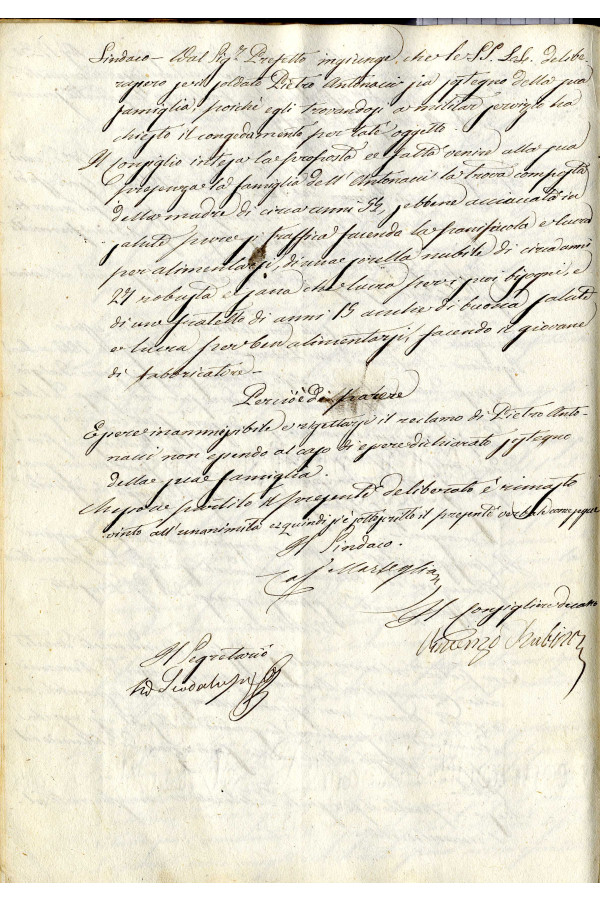 Sindaco - Dal Sig.r Prefetto ingiunge, che le SS. LL. delibe-
rassero se il soldato Pietro Antonacci sia sostegno della sua
famiglia, poichè egli trovandosi a militar servizio ha
chiesto il congedamento per tale oggetto.
Il Consiglio intesa la proposta e fatta venire alla sua
presenza la famiglia dell'Antonacci la trova composta
della madre di circa anni 52, sebbene acciaccata in
salute pure si traffica facendo la panificola e lucra
per alimentarsi, di una sorella nubile di circa anni
27 robusta e sana che lucra per i suoi bisogni, e
di uno fratello di anni 15 anche di buona salute
e lucra per ben alimentarsi, facendo il giovane
di fabbricatore -
Perciò è di parere
Essere inammissibile e rigettarsi il reclamo di Pietro Anto-
nacci non essendo al caso di essere dichiarato sostegno
della sua famiglia.
Messo a partito il presente deliberato è rimasto
vinto all'unanimità e quindi si è sottoscritto il presente verbale come segue
Il Sindaco.
Marseglia
Il Consigliere
Vincenzo Rubino
Il Segretario